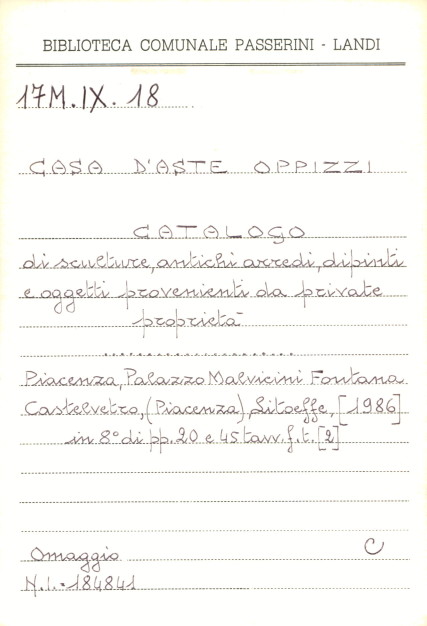 BIBLIOTECA COMUNALE PASSERINI - LANDI
17M.IX.18
CASA D'ASTE OPPIZZI
CATALOGO
di sculture, antichi arredi, dipinti
e oggetti provenienti da private
proprietà
Piacenza, Palazzo Malvicini Fontana
Castelvetro, (Piacenza), Litoeffe, [1986]
in 8° di pp. 20 e 45 tavv. f. t. [2]
Omaggio C
N.I.=184841